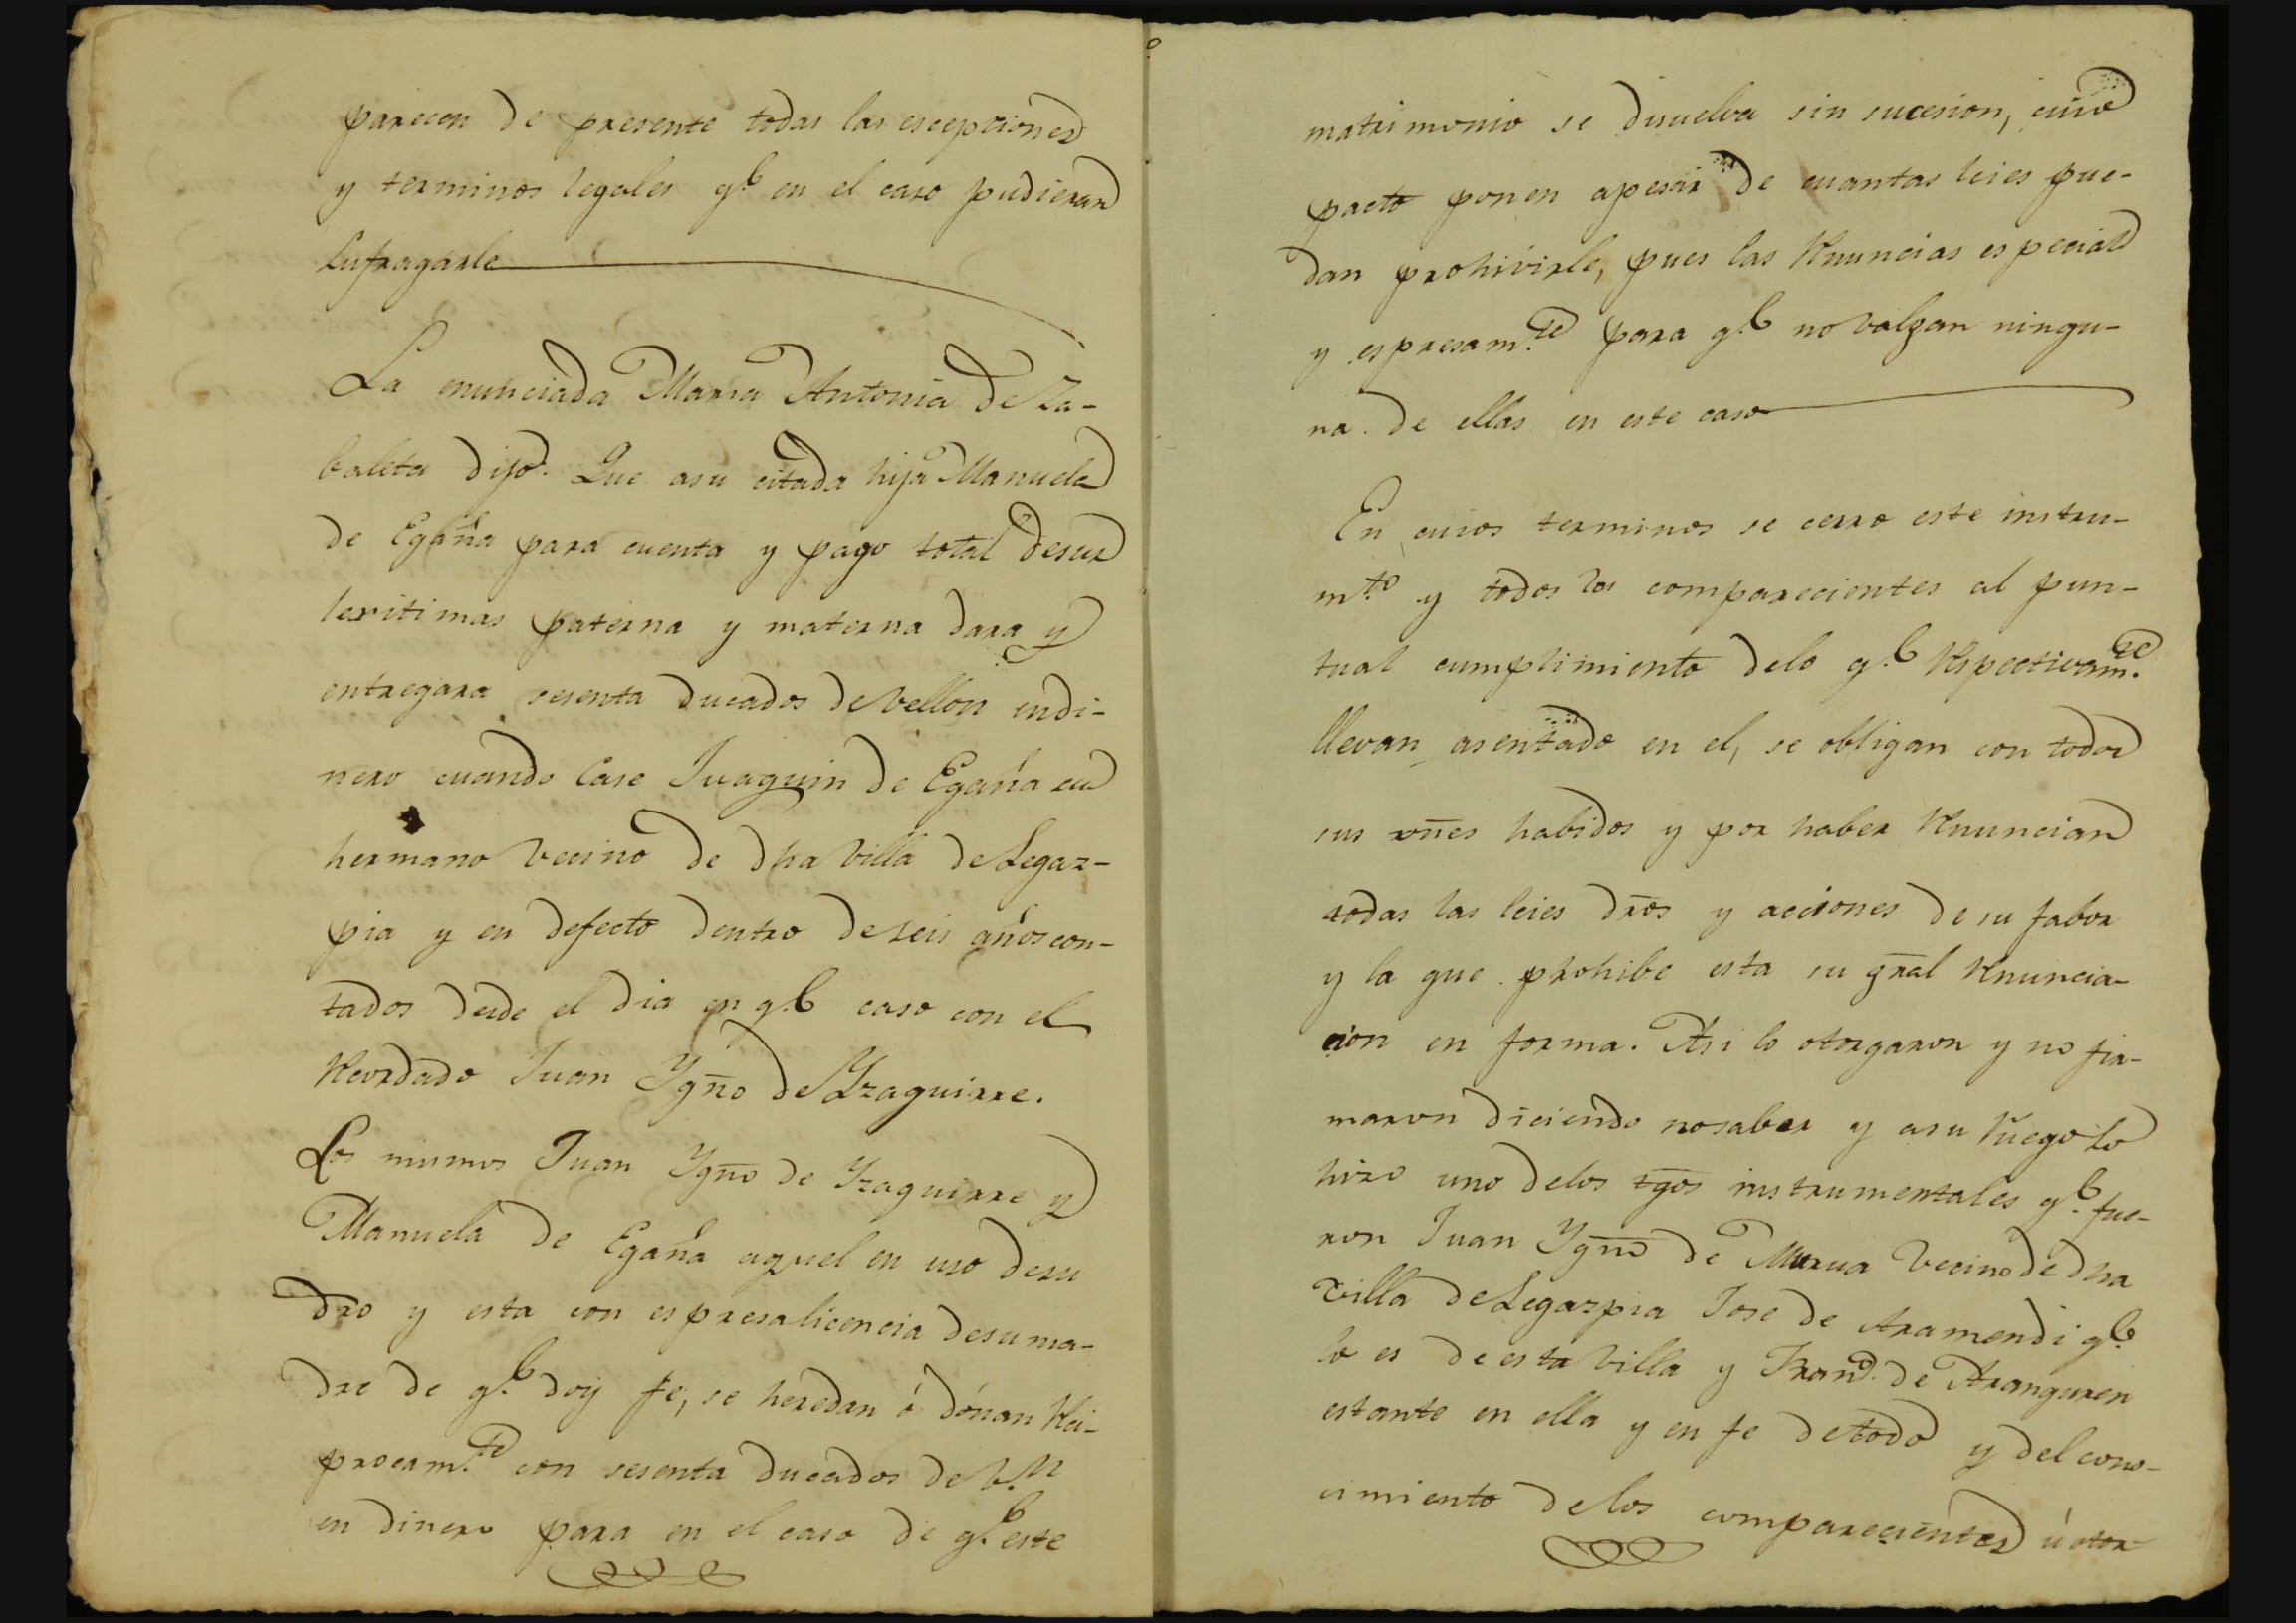 parecen de presente todas las escepciones
y terminos legales q.e en el caso pudieran
sufragarle
La enunciada Maria Antonia de Za-
baleta dijo. Que asu citada hija Manuela
de Egaña para cuenta y pago total desus
lexitimas paterna y materna dara y
entregara sesenta ducados de vellon endi-
nero cuando Case Juaquin de Egaña su
hermano vecino de dha villa de Legaz-
pia y en defecto dentro deseis años con-
tados desde el dia en q.e caso con el
Recordado Juan Ygño de Yzaguirre.
Los mismos Juan Ygño de Yzaguirre y
Manuela de Egaña aquel en uso desu
dro y esta con espresa licencia desu ma-
dre de q.e doy fe, se heredan ó dónan Reci-
procam.te con sesenta ducados de v.n
en dinero para en el caso de q.e este
matrimonio se disuelva sin sucesion, cuio
pacto ponen apesar de cuantas leies pue-
dan prohivirle, pues las Renuncias especial
y espresam.te para q.e no valgan ningu-
na de ellas en este caso
En cuios terminos se cerro este instru-
m.to y todos los comparecientes al pun-
tual cumplimiento delo q.e Respectivam.te
llevan asentado en el, se obligan con todos
sus vñes habidos y por haber Renuncian
todas las leies dros y acciones de su fabor
y la que prohibe esta su gral Renuncia-
cion en forma. Asi lo otorgaron y no fir-
maron diciendo nosaber y asu Ruego lo
hizo uno delos tgos instrumentales q.e fue-
ron Juan Ygño de Murua vecino de dha
villa de Legazpia Jose de Aramendi q.e
lo es de esta villa y Fran.co de Aranguren
estante en ella y en fe detodo y del cono-
cimiento delos comparecientes ú otor